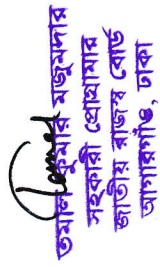 তমাল কুমার মজুমদার
সহকারী প্রোগ্রামার
জাতীয় রাজস্ব বোর্ড
আগারগাঁও, ঢাকা